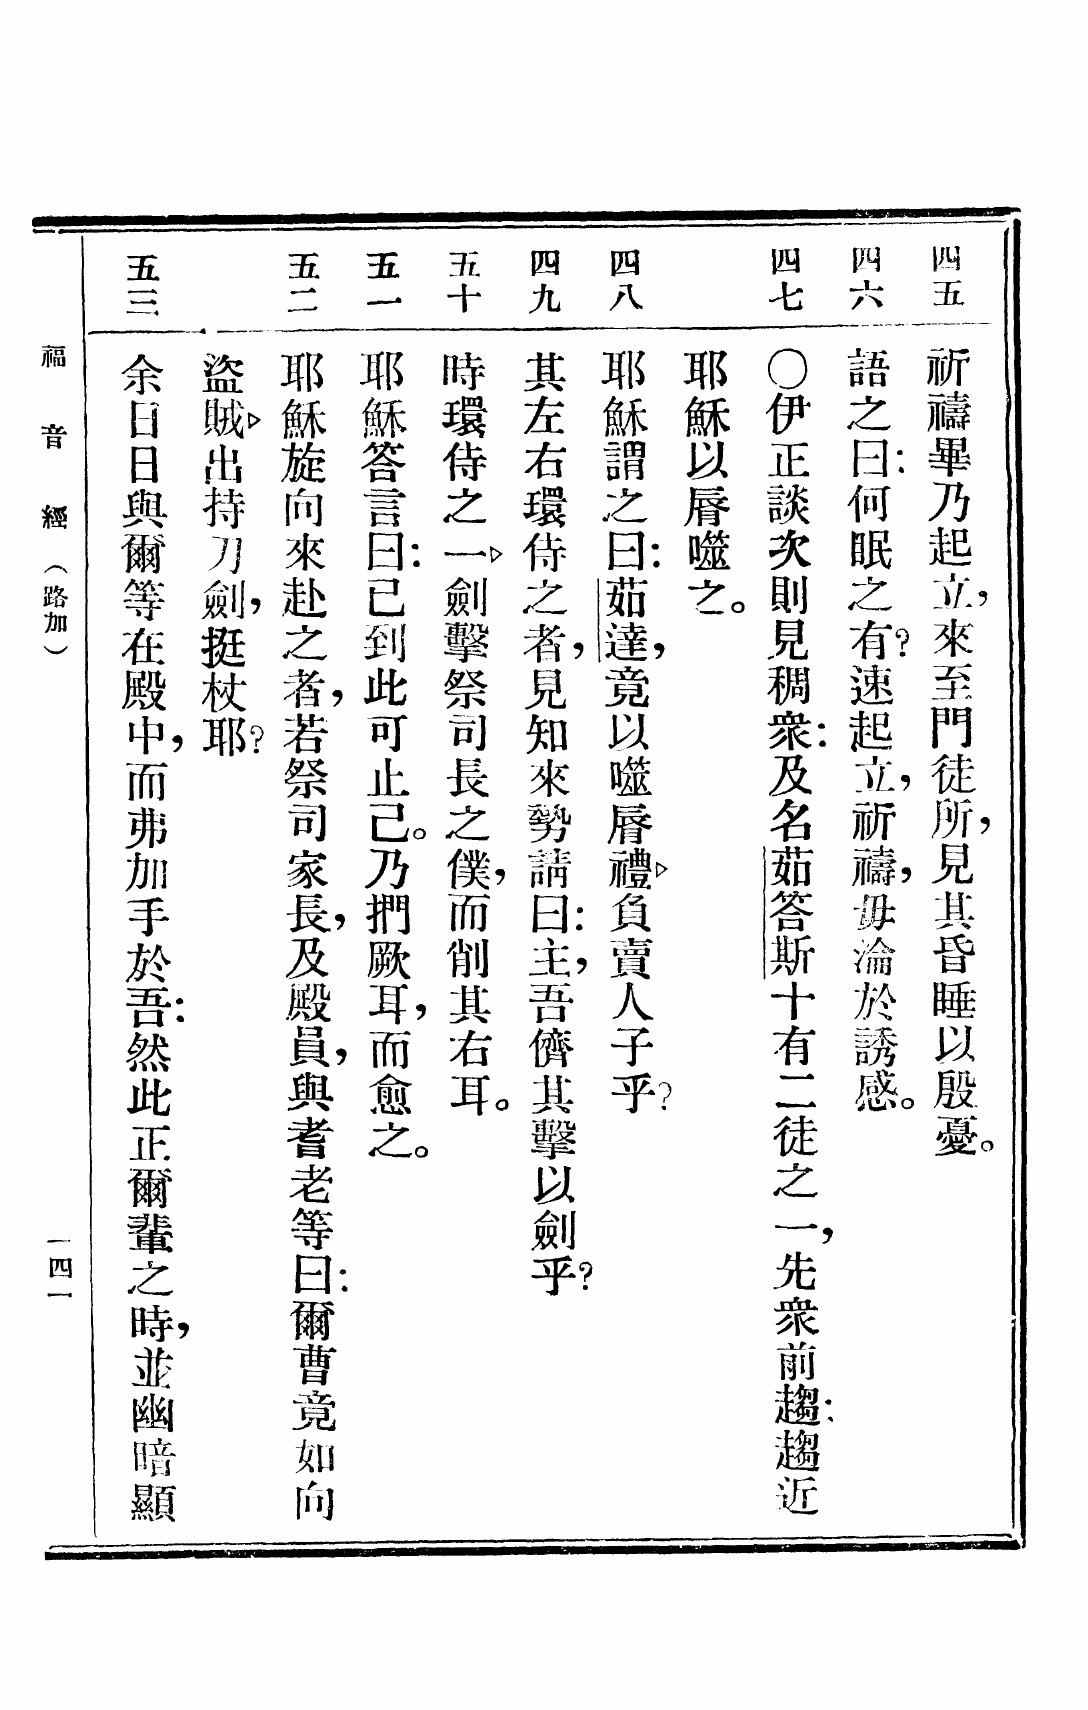 四五 祈禱畢乃起立,來至門徒所,見其昏睡以殷憂。
四六 語之曰:何眠之有?速起立,祈禱,毋淪於誘感。
四七 〇伊正談次則見稠衆:及名茹答斯十有二徒之一,先衆前趨:趨近
耶穌以脣噬之。
四八 耶穌謂之曰:茹達,竟以噬脣禮▹負賣人子乎?
四九 其左右環侍之者,見知來勢請曰:主,吾儕其擊以劍乎?
五十 時環侍之一▹劍擊祭司長之僕,而削其右耳。
五一 耶穌答言曰:已到此可止己。乃捫厥耳,而愈之。
五二 耶穌旋向來赴之者,若祭司家長,及殿員,與耆老等曰:爾曹竟如向
盜賊▹出持刀劍,挺杖耶?
五三 余日日與爾等在殿中,而弗加手於吾:然此正爾輩之時,並幽暗顯
福音經(路加)
一四一